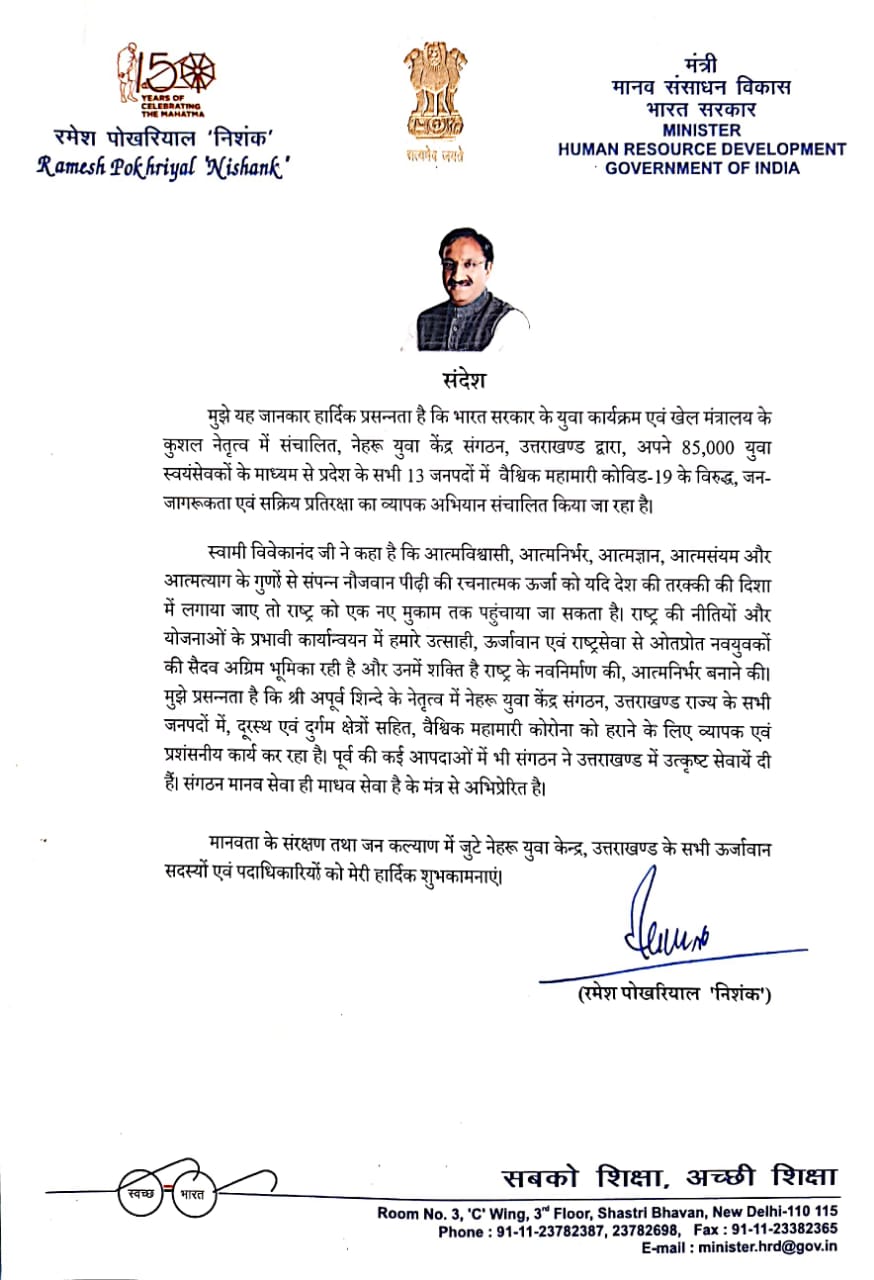 150
YEARS OF
CELEBRATING
THE MAHATMA
रमेश पोखरियाल 'निशंक'
Ramesh Pokhriyal 'Nishank'
सत्यमेव जयते
मंत्री
मानव संसाधन विकास
भारत सरकार
MINISTER
HUMAN RESOURCE DEVELOPMENT
GOVERNMENT OF INDIA
संदेश
मुझे यह जानकार हार्दिक प्रसन्नता है कि भारत सरकार के युवा कार्यक्रम एवं खेल मंत्रालय के
कुशल नेतृत्व में संचालित, नेहरू युवा केंद्र संगठन, उत्तराखण्ड द्वारा, अपने 85,000 युवा
स्वयंसेवकों के माध्यम से प्रदेश के सभी 13 जनपदों में वैश्विक महामारी कोविड-19 के विरुद्ध, जन-
जागरूकता एवं सक्रिय प्रतिरक्षा का व्यापक अभियान संचालित किया जा रहा है।
स्वामी विवेकानंद जी ने कहा है कि आत्मविश्वासी, आत्मनिर्भर, आत्मज्ञान, आत्मसंयम और
आत्मत्याग के गुणों से संपन्न नौजवान पीढ़ी की रचनात्मक ऊर्जा को यदि देश की तरक्की की दिशा
में लगाया जाए तो राष्ट्र को एक नए मुकाम तक पहुंचाया जा सकता है। राष्ट्र की नीतियों और
योजनाओं के प्रभावी कार्यान्वयन में हमारे उत्साही, ऊर्जावान एवं राष्ट्रसेवा से ओतप्रोत नवयुवकों
की सैदव अग्रिम भूमिका रही है और उनमें शक्ति है राष्ट्र के नवनिर्माण की, आत्मनिर्भर बनाने की।
मुझे प्रसन्नता है कि श्री अपूर्व शिन्दे के नेतृत्व में नेहरू युवा केंद्र संगठन, उत्तराखण्ड राज्य के सभी
जनपदों में, दूरस्थ एवं दुर्गम क्षेत्रों सहित, वैश्विक महामारी कोरोना को हराने के लिए व्यापक एवं
प्रशंसनीय कार्य कर रहा है। पूर्व की कई आपदाओं में भी संगठन ने उत्तराखण्ड में उत्कृष्ट सेवायें दी
हैं। संगठन मानव सेवा ही माधव सेवा है के मंत्र से अभिप्रेरित है।
मानवता के संरक्षण तथा जन कल्याण में जुटे नेहरू युवा केन्द्र, उत्तराखण्ड के सभी ऊर्जावान
सदस्यों एवं पदाधिकारियों को मेरी हार्दिक शुभकामनाएं।
(रमेश पोखरियाल 'निशंक')
स्वच्छ भारत
सबको शिक्षा, अच्छी शिक्षा
Room No. 3, 'C' Wing, 3rd Floor, Shastri Bhavan, New Delhi-110 115
Phone : 91-11-23782387, 23782698, Fax : 91-11-23382365
E-mail : minister.hrd@gov.in